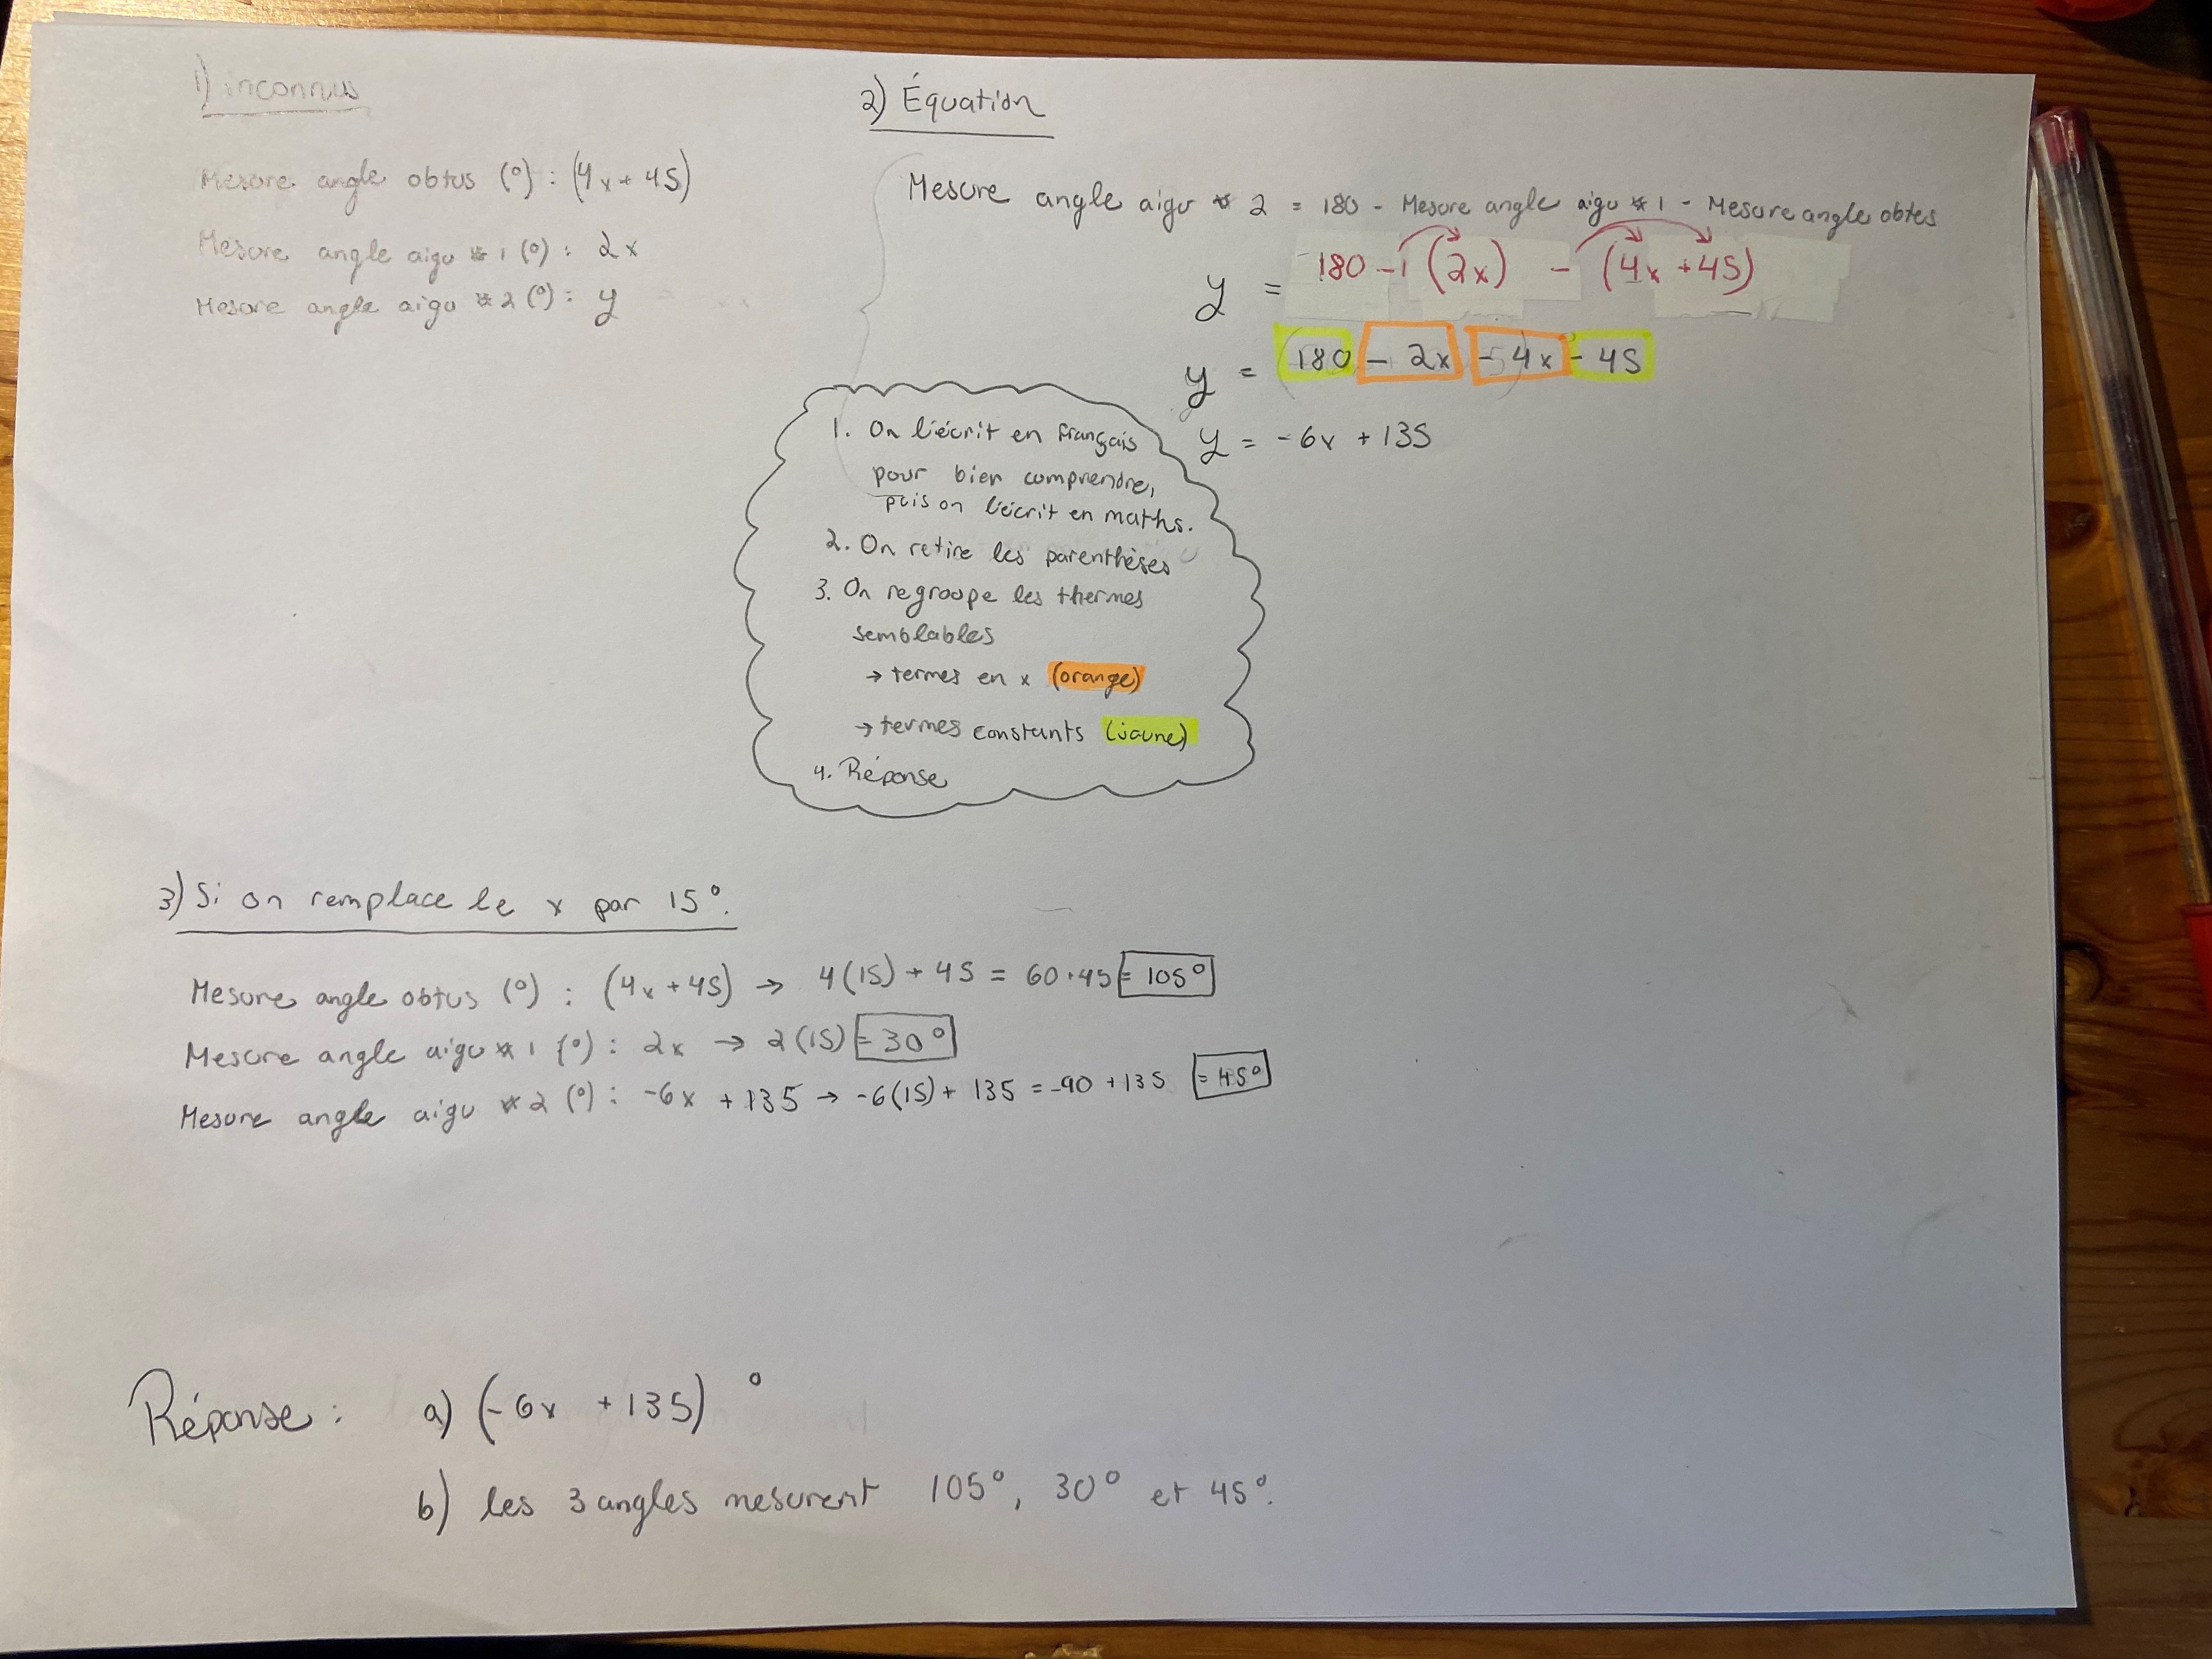 1) inconnus
Mesure angle obtus (°) : (4x + 45)
Mesure angle aigu * 1 (°) : 2x
Mesure angle aigu * 2 (°) : y
2) Équation
Mesure angle aigu * 2 = 180 - Mesure angle aigu * 1 - Mesure angle obtus
y = 180 - 1 (2x) - (4x + 45)
y = 180 - 2x - 4x - 45
y = -6x + 135
1. On l'écrit en français
pour bien comprendre,
puis on l'écrit en maths.
2. On retire les parenthèses
3. On regroupe les thermes
semblables
→ termes en x (orange)
→ termes constants (jaune)
4. Réponse
3) Si on remplace le x par 15°.
Mesure angle obtus (°) : (4x + 45) → 4(15) + 45 = 60 + 45 = 105°
Mesure angle aigu * 1 (°) : 2x → 2(15) = 30°
Mesure angle aigu * 2 (°) : -6x + 135 → -6(15) + 135 = -90 + 135 = 45°
Réponse : a) (-6x + 135)°
b) les 3 angles mesurent 105°, 30° et 45°.